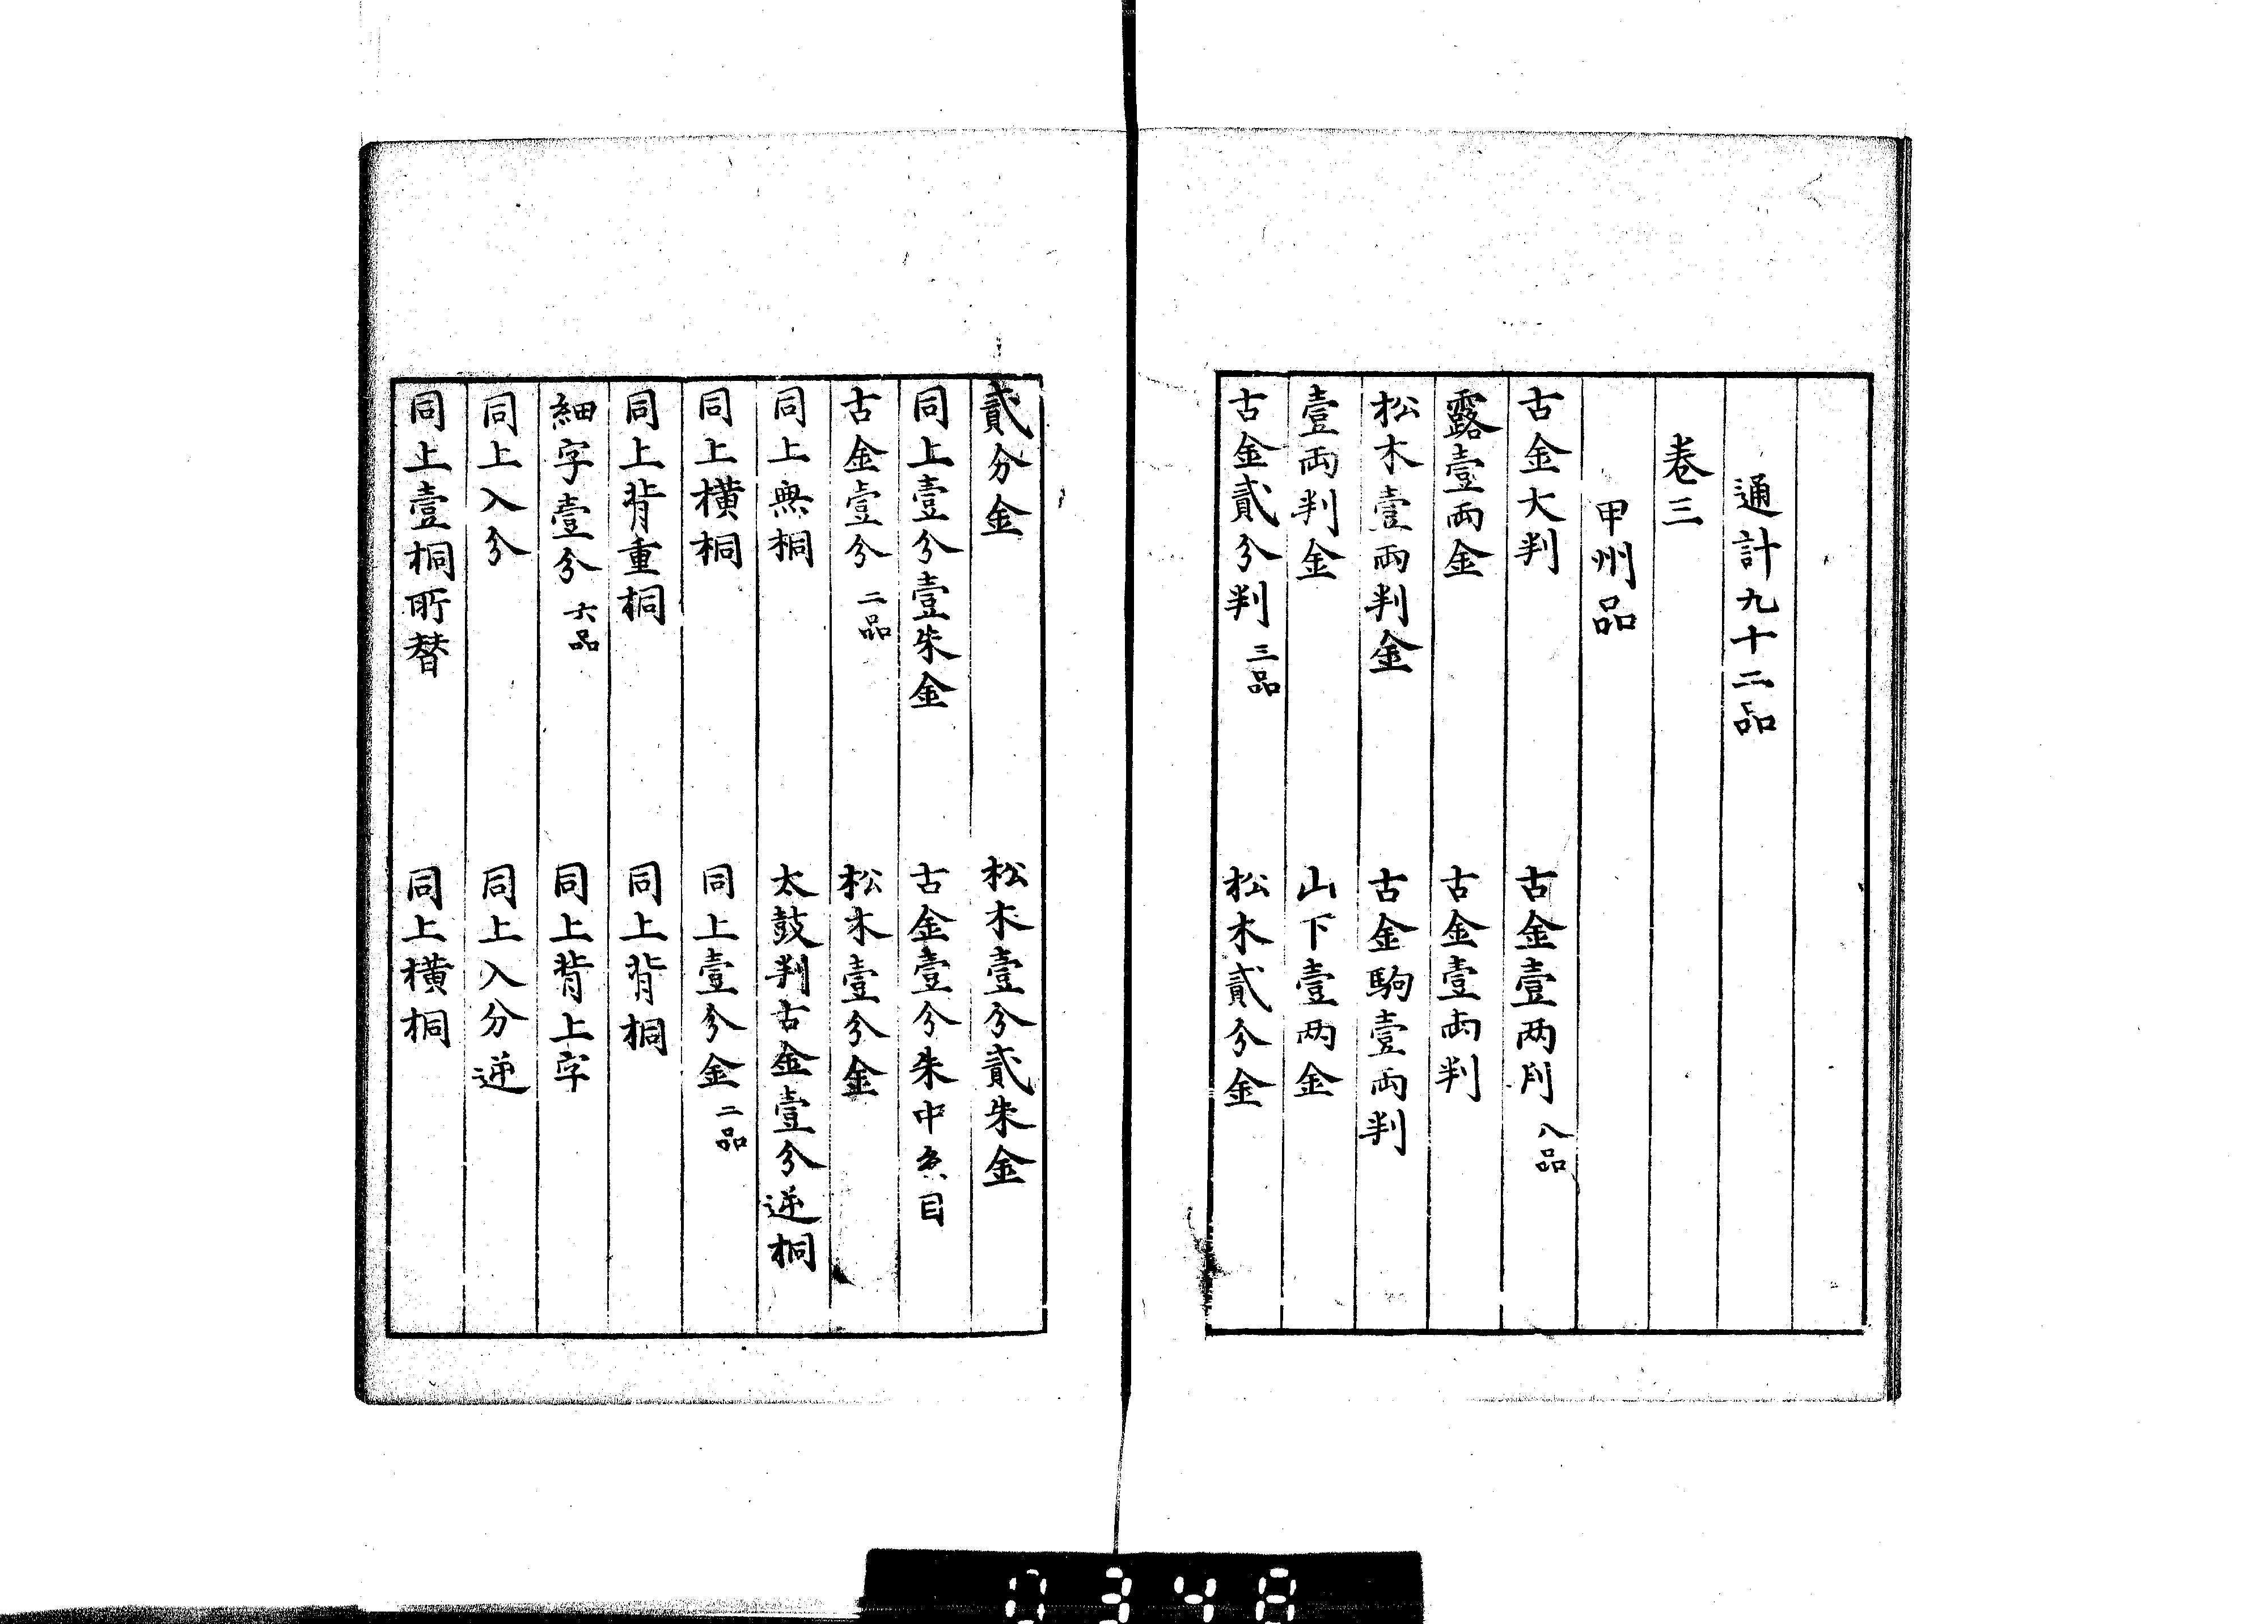 通計九十二品
卷三
甲州品
古金大判　古金壹两判 八品
露壹両金　古金壹両判
松木壹両判金　古金駒壹両判
壹両判金　山下壹两金
古金貳分判 三品　松木貳分金
貳分金　松木壹分貳朱金
同上壹分壹朱金　古金壹分朱中糸目
古金壹分 二品　松木壹分金
同上無桐　太鼓判古金壹分逆桐
同上橫桐　同上壹分金 二品
同上背重桐　同上背桐
細字壹分 六品　同上背上字
同上入分　同上入分逆
同上壹桐所替　同上橫桐
0348